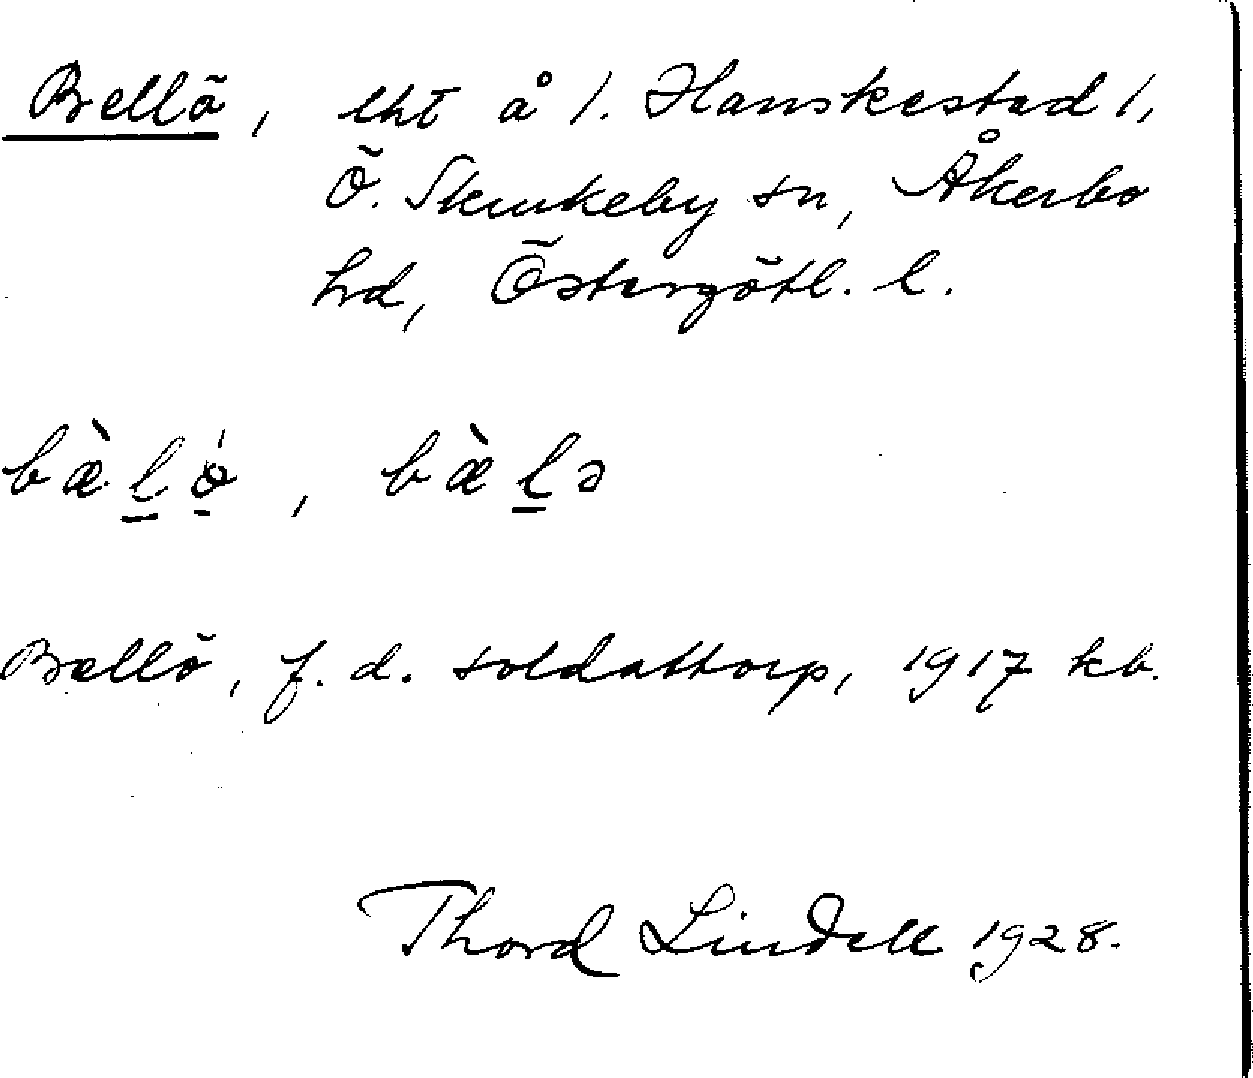 Bellö, lht å 1. Hanskestad 1,
Ö. Skrukeby sn, Åkerbo
hd, Östergötl. l.
bæ̀l̠ö̠́, bæ̀l̠ə
Bellö, f. d. soldattorp, 1917 kb.
Thord Lindell 1928.